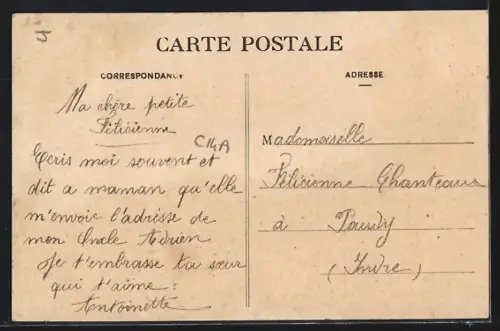 4
CARTE POSTALE
CORRESPONDANCE
Ma chère petite
Félicienne
C14A
Ecris moi souvent et
dit a maman qu'elle
m'envoie l'adresse de
mon Oncle Adrien
Je t'embrasse ta sœur
qui t'aime :
Antoinette
ADRESSE
Mademoiselle
Félicienne Chanteaux
à Paudy
(Indre)